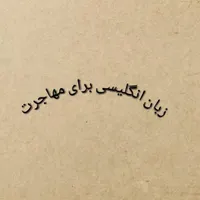 زبان انگلیسی برای مهاجرت